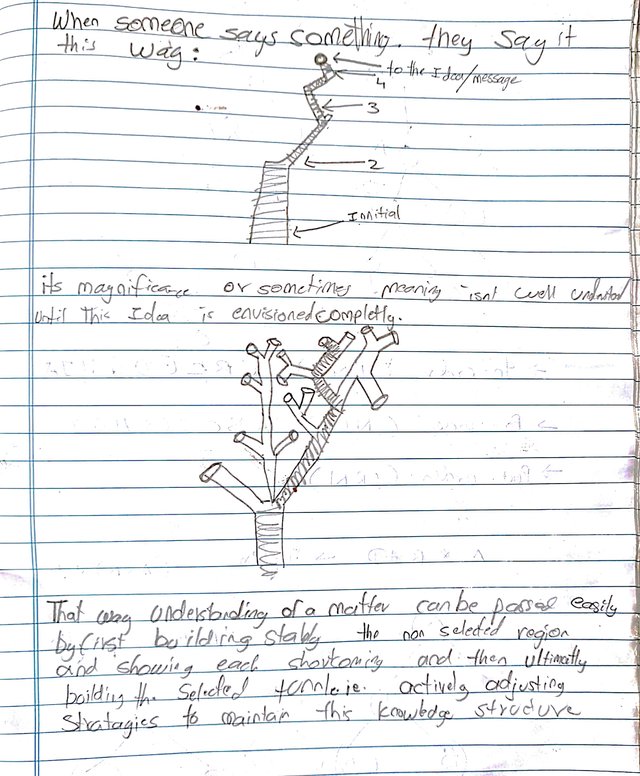 When someone says something. they say it
this way:
to the Idea/message
4
3
2
Innitial
its magnificance or sometimes meaning isnt well understood
until this Idea is envisioned completly.
That way understanding of a matter can be passed easily
by first building stably the non selected region
and showing each shortcoming and then ultimatly
building the selected tunnle ie. actively adjusting
stratagies to maintain this knowledge structure